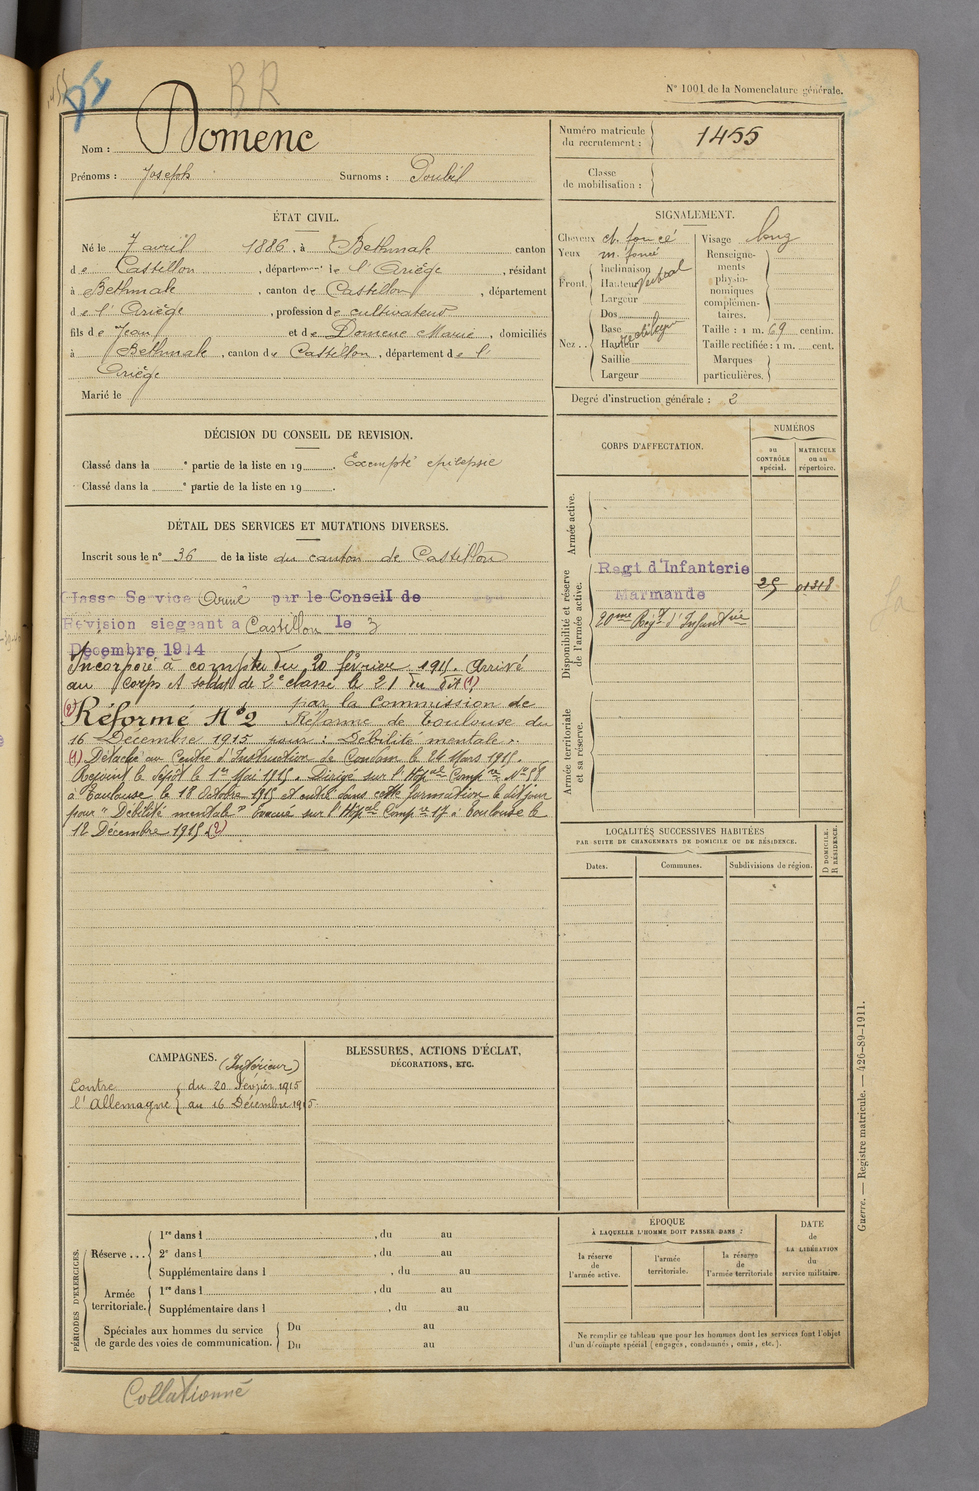 BR
N° 1001 de la Nomenclature générale.
Nom : Domenc
Prénoms : Joseph Surnoms : Poubil
Numéro matricule du recrutement : 1455
Classe de mobilisation :
ÉTAT CIVIL.
Né le 7 avril 1886, à Bethmale canton
de Castillon, département de l'Ariège, résidant
à Bethmale, canton de Castillon, département
de l'Ariège, profession de cultivateur
fils de Jean et de Domenc Marie, domiciliés
à Bethmale, canton de Castillon, département de l'
Ariège
Marié le
SIGNALEMENT.
Cheveux ch. foncé
Yeux m. foncé
Front. Inclinaison
Hauteur
Largeur
vertical
Nez .. Dos
Base
Hauteur
Saillie
Largeur
Visage long
Renseignements physionomiques complémentaires.
Taille : 1 m. 69 centim.
Taille rectifiée : 1 m. cent.
Marques particulières.
Degré d'instruction générale : 2
DÉCISION DU CONSEIL DE REVISION.
Classé dans la e partie de la liste en 19 . Exempté épilepsie
Classé dans la e partie de la liste en 19 .
DÉTAIL DES SERVICES ET MUTATIONS DIVERSES.
Inscrit sous le n° 36 de la liste du canton de Castillon
Classé Service Armé par le Conseil de
Révision siégeant à Castillon le 3
Décembre 1914
Incorporé à compter du 20 février 1915. Arrivé
au corps et soldat de 2e classe le 21 du dit (1)
(2) Réformé N°2 par la Commission de
Réforme de Toulouse du
16 Décembre 1915 pour : Débilité mentale.
(1) Détaché au Centre d'Instruction de Condom le 24 Mars 1915.
Rejoint le dépôt le 1er Mai 1915. Dirigé sur l'Hôpal Comp re N° 58
à Toulouse le 18 Octobre 1915 et entré dans cette formation le dit jour
pour "Débilité mentale" Evacué sur l'Hôpal Comp re 17 à Toulouse le
12 Décembre 1915 (2)
CORPS D'AFFECTATION.
NUMÉROS
au CONTRÔLE spécial.
MATRICULE ou au répertoire.
Armée active.
Disponibilité et réserve de l'armée active.
Regt d'Infanterie
Marmande
20me Regt d'Infanterie
Armée territoriale et sa réserve.
LOCALITÉS SUCCESSIVES HABITÉES
PAR SUITE DE CHANGEMENTS DE DOMICILE OU DE RÉSIDENCE.
Dates. Communes. Subdivisions de région. D DOMICILE. R RÉSIDENCE.
CAMPAGNES.
(Intérieur)
Contre du 20 Février 1915
l'Allemagne au 16 Décembre 1915.
BLESSURES, ACTIONS D'ÉCLAT,
DÉCORATIONS, ETC.
PÉRIODES D'EXERCICES.
Réserve ... 1re dans l , du au
2e dans l , du au
Supplémentaire dans l , du au
Armée territoriale. 1re dans l , du au
Supplémentaire dans l , du au
Spéciales aux hommes du service
de garde des voies de communication.
Du au
Du au
ÉPOQUE
À LAQUELLE L'HOMME DOIT PASSER DANS :
la réserve de l'armée active.
l'armée territoriale.
la réserve de l'armée territoriale
DATE
de
LA LIBÉRATION
du
service militaire.
Ne remplir ce tableau que pour les hommes dont les services font l'objet
d'un décompte spécial (engagés, condamnés, omis, etc.).
Guerre. — Registre matricule. — 426-89-1911.
Collationné